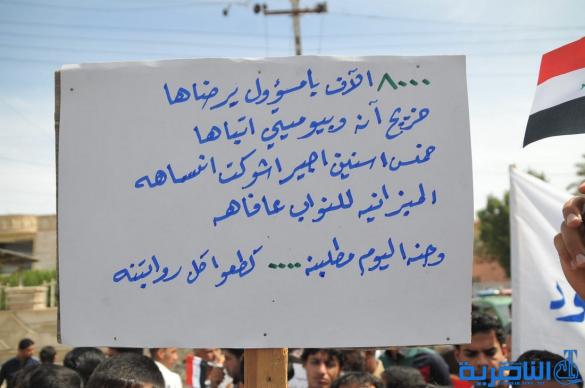 ٨٠٠٠ الآف يا مسؤول يرضاها
خريج آنه وبيومي اتباها
خمس اسنين اجير اشوكت انساهه
الميزانيه للنواب عافاهه
وجنه اليوم مطلبنه .... كطعوا كل رواتبنه
ود
الناصرية